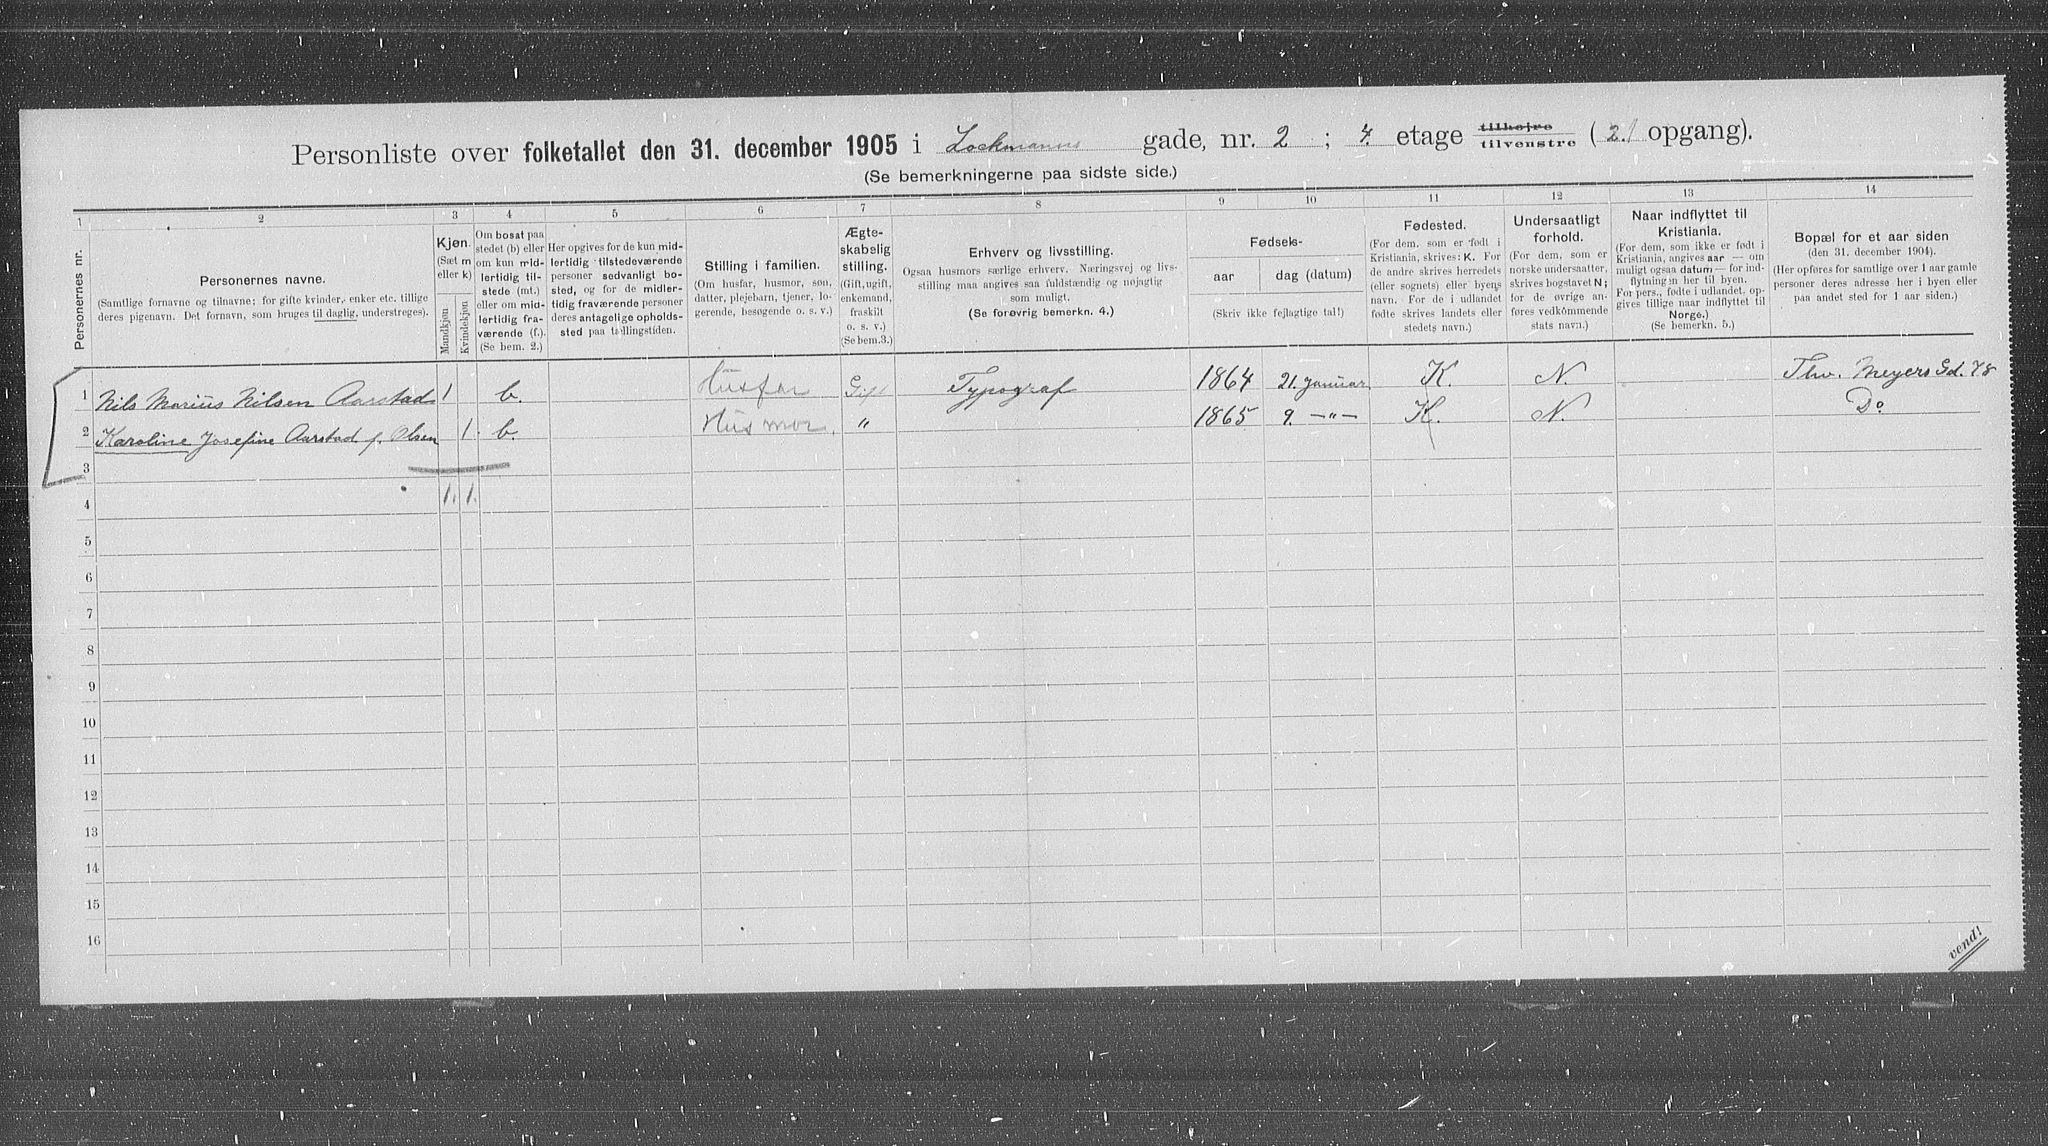 Personliste over folketallet den 31. december 1905 i Lockmanns gade, nr. 2 ; 4. etage tilhøjre tilvenstre (2./ opgang).
(Se bemerkningerne paa sidste side.)
1 2 3 4 5 6 7 8 9 10 11 12 13 14
Personernes nr.
Personernes navne.
(Samtlige fornavne og tilnavne; for gifte kvinder, enker etc. tillige
deres pigenavn. Det fornavn, som bruges til daglig, understreges).
Kjøn.
(Sæt m
eller k)
Mandkjøn
Kvindekjøn
Om bosat paa
stedet (b) eller
om kun mid-
lertidig til-
stede (mt.)
eller om mid-
lertidig fra-
værende (f.).
(Se bem. 2.)
Her opgives for de kun mid-
lertidig tilstedeværende
personer sedvanligt bo-
sted, og for de midler-
tidig fraværende personer
deres antagelige opholds-
sted paa tællingstiden.
Stilling i familien.
(Om husfar, husmor, søn,
datter, plejebarn, tjener, lo-
gerende, besøgende o. s. v.)
Ægte-
skabelig
stilling.
(Gift, ugift,
enkemand,
fraskilt
o. s. v.)
(Se bem.3.)
Erhverv og livsstilling.
Ogsaa husmors særlige erhverv. Næringsvej og livs-
stilling maa angives saa fuldstændig og nøjagtig
som muligt.
(Se forøvrig bemerkn. 4.)
Fødsels-
aar
dag (datum)
(Skriv ikke fejlagtige tal!)
Fødested.
(For dem, som er født i
Kristiania, skrives: K. For
de andre skrives herredets
(eller sognets) eller byens
navn. For de i udlandet
fødte skrives landets eller
stedets navn.)
Undersaatligt
forhold.
(For dem, som er
norske undersaatter,
skrives bogstavet N;
for de øvrige an-
føres vedkommende
stats navn.)
Naar indflyttet til
Kristiania.
(For dem, som ikke er født i
Kristiania, angives aar — om
muligt ogsaa datum — for ind-
flytningen her til byen.
For pers., fødte i udlandet, op-
gives tillige naar indflyttet til
Norge.)
(Se bemerkn. 5.)
Bopæl for et aar siden
(den 31. december 1904).
(Her opføres for samtlige over 1 aar gamle
personer deres adresse her i byen eller
paa andet sted for 1 aar siden.)
1 Nils Marius Nilsen Aarstad 1 b. Husfar Gift Typograf 1864 21. januar K. N. Thv. Meyers Gd. 78
2 Karoline Josefine Aarstad f. Olsen 1. b. Husmor " 1865 9. —"— K. N. Do
3
4 1. 1.
5
6
7
8
9
10
11
12
13
14
15
16
vend!